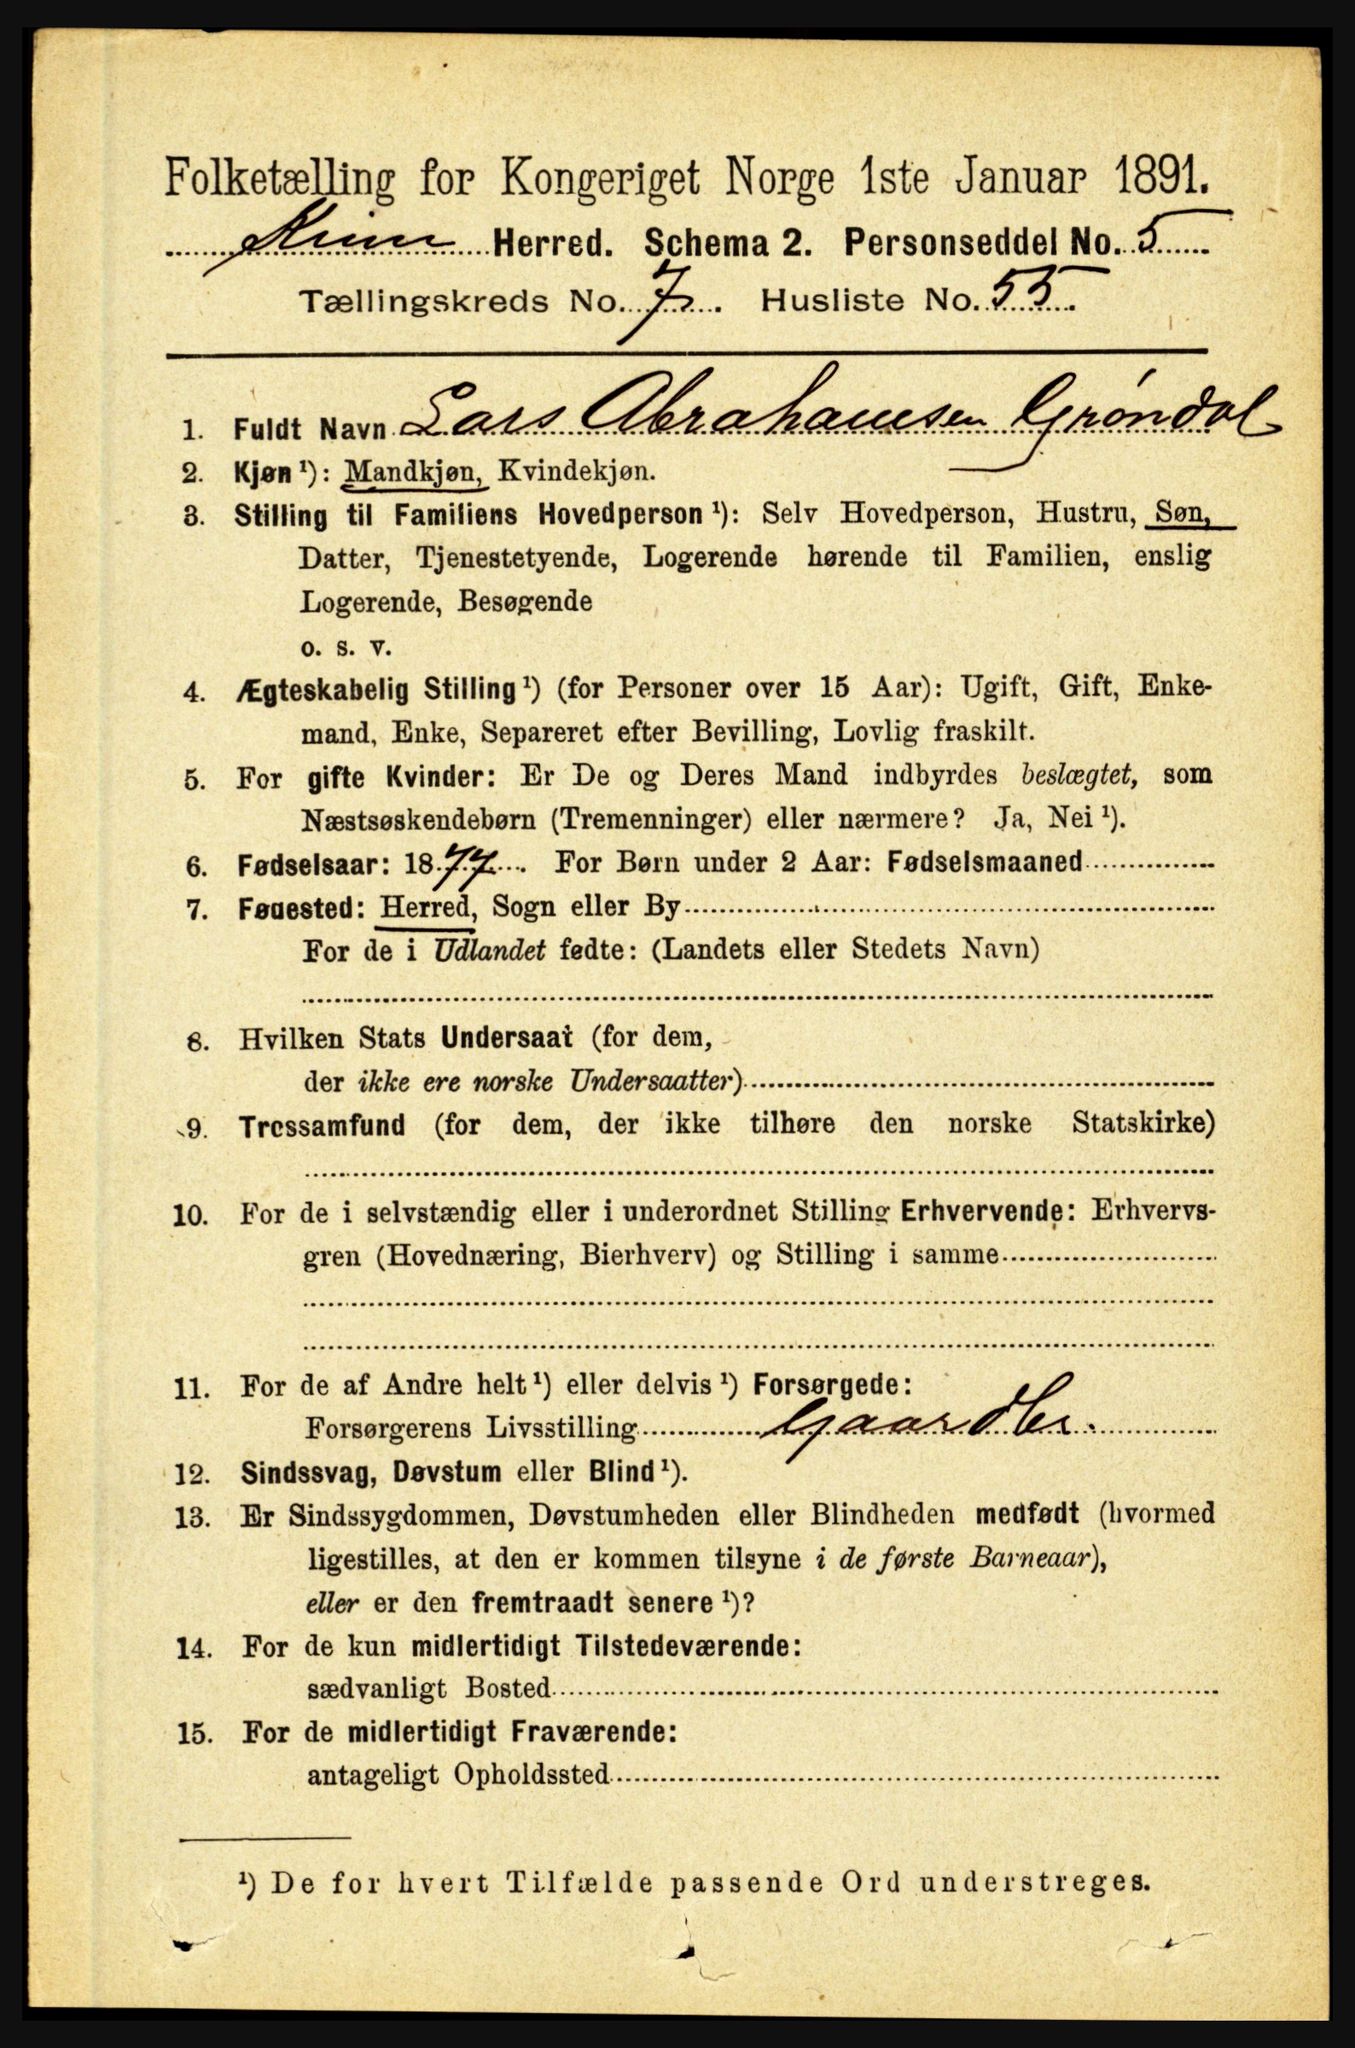 Folketælling for Kongeriget Norge 1ste Januar 1891.
Kinn Herred. Schema 2. Personseddel No. 5
Tællingskreds No. 7. Husliste No. 55.
1. Fuldt Navn Lars Abrahamsen Grøndal
2. Kjøn ¹): Mandkjøn, Kvindekjøn.
3. Stilling til Familiens Hovedperson ¹): Selv Hovedperson, Hustru, Søn,
Datter, Tjenestetyende, Logerende hørende til Familien, enslig
Logerende, Besøgende
o. s. v.
4. Ægteskabelig Stilling ¹) (for Personer over 15 Aar): Ugift, Gift, Enke-
mand, Enke, Separeret efter Bevilling, Lovlig fraskilt.
5. For gifte Kvinder: Er De og Deres Mand indbyrdes beslægtet, som
Næstsøskendebørn (Tremenninger) eller nærmere? Ja, Nei ¹).
6. Fødselsaar: 1877. For Børn under 2 Aar: Fødselsmaaned
7. Fødested: Herred, Sogn eller By
For de i Udlandet fødte: (Landets eller Stedets Navn)
8. Hvilken Stats Undersaat (for dem,
der ikke ere norske Undersaatter)
9. Trossamfund (for dem, der ikke tilhøre den norske Statskirke)
10. For de i selvstændig eller i underordnet Stilling Erhvervende: Erhvervs-
gren (Hovednæring, Bierhverv) og Stilling i samme
11. For de af Andre helt ¹) eller delvis ¹) Forsørgede:
Forsørgerens Livsstilling Gaardbr.
12. Sindssvag, Døvstum eller Blind ¹).
13. Er Sindssygdommen, Døvstumheden eller Blindheden medfødt (hvormed
ligestilles, at den er kommen tilsyne i de første Barneaar),
eller er den fremtraadt senere ¹)?
14. For de kun midlertidigt Tilstedeværende:
sædvanligt Bosted
15. For de midlertidigt Fraværende:
antageligt Opholdssted
¹) De for hvert Tilfælde passende Ord understreges.